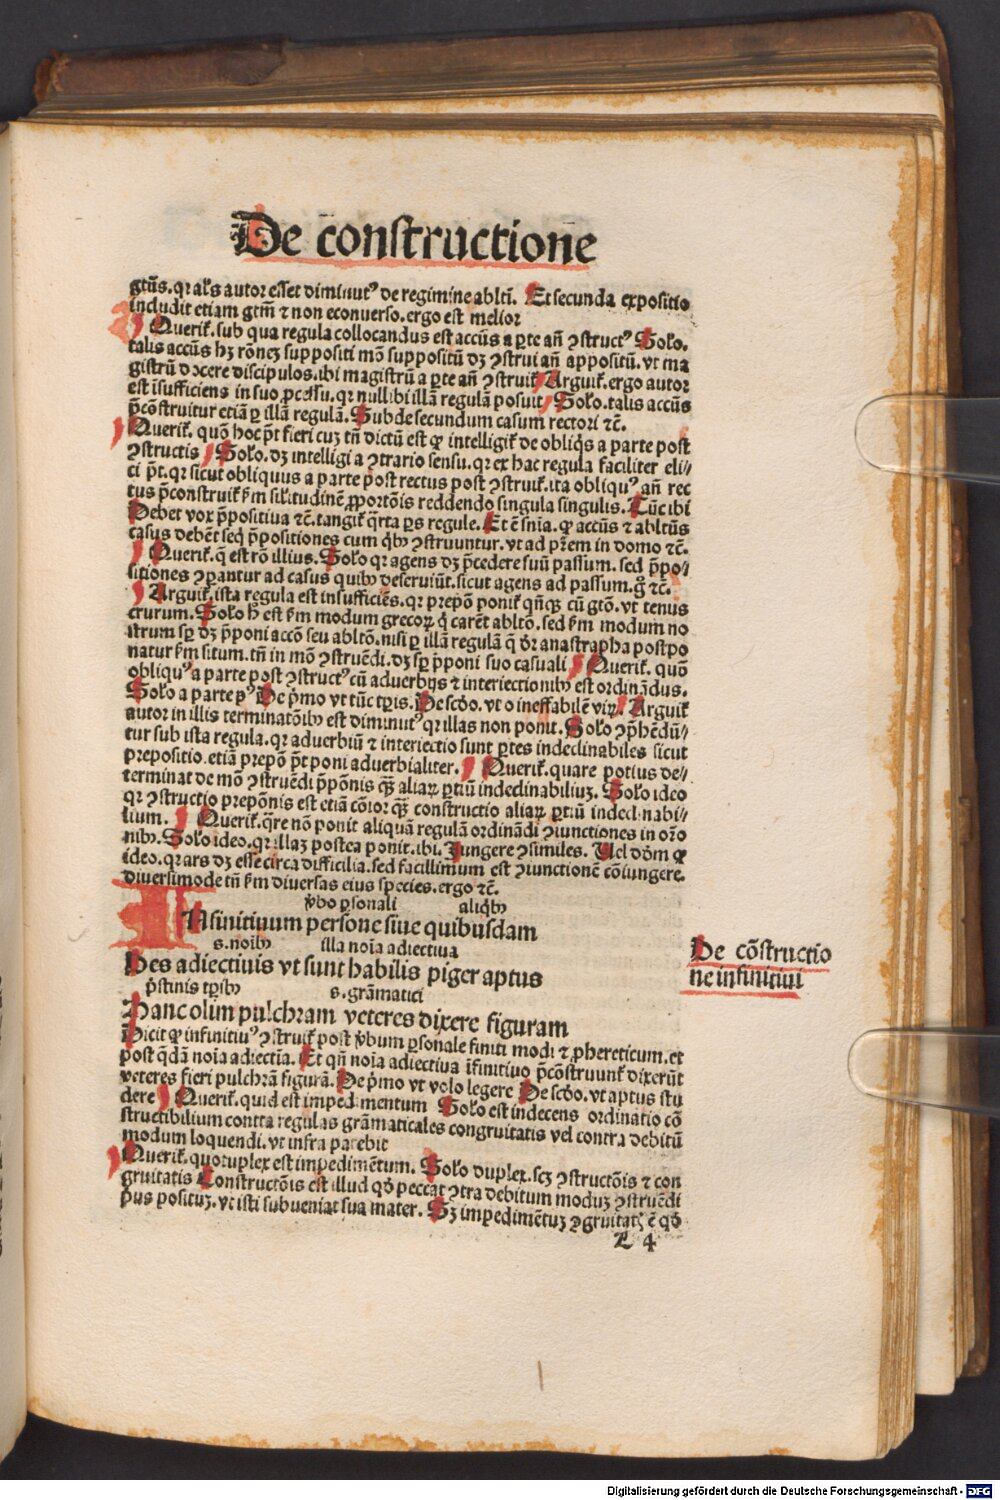 De constructione
gtūs. qr al's autor esset diminut⁹ de regimine abltī. Et secunda expositio
includit etiam gtm̄ ⁊ non econuerso. ergo est melior
Querit᷑. sub qua regula collocandus est accūs a ꝑte añ ꝯstruct⁹ Solo.
talis accūs hꝫ rōneꝫ suppositi mō suppositū dꝫ ꝯstrui añ appositū. vt ma
gistrū docere discipulos. ibi magistrū a ꝑte añ ꝯstruit᷑ Arguit᷑. ergo autor
est īsufficiens in suo ꝓcessu. qr nullibi illam regulā posuit Solo. talis accūs
p̄cōstruitur etiā ꝑ illā regulā. Subde secundum casum rectori ⁊c̄.
Querit᷑. quō hoc pt̄ fieri cuꝫ tñ dictū est ꝙ intelligit᷑ de obliq̄s a parte post
ꝯstructis Solo. dꝫ intelligi a ꝯtrario sensu. qr ex hac regula faciliter eli⸗
ci pt̄. qr sicut obliquus a parte post rectus post ꝯstruit᷑. ita obliqu⁹ añ rec
tus p̄construit᷑ ẜm sil'itudinē ꝓportōis reddendo singula singulis. Tūc ibi
Debet vox p̄positiua ⁊c̄. tangit᷑ q̄rta ꝑs regule. Et ē snīa. ꝙ accūs ⁊ abltūs
casus debēt seq̄ p̄positiones cum qͥbꝫ ꝯstruuntur. vt ad pr̄em in domo ⁊c̄.
Querit᷑. q̄ est rō illius. Solo qr agens dꝫ p̄cedere suū passum. sed p̄po⸗
sitiones ꝯꝑantur ad casus quibꝫ deseruiūt. sicut agens ad passum. g̊ ⁊c̄.
Arguit᷑. ista regula est insufficiēs. qr prepō ponit᷑ qñqꝫ cū gtō. vt tenus
crurum. Solo h̄ est ẜm modum grecoꝝ qͥ carēt abltō. sed ẜm modum no
strum sꝑ dꝫ p̄poni accō seu abltō. nisi ꝑ illā regulā q̄ dr̄ anastropha postpo
natur ẜm situm. tñ in mō ꝯstruēdi. dꝫ sꝑ p̄poni suo casuali Querit᷑. quō
obliqu⁹ a parte post ꝯstruct⁹ cū aduerbijs ⁊ interiectionibꝫ est ordinādus.
Solo a parte p⁹ De pͥmo vt tūc tp̄is. De scd̄o. vt o ineffabilē viꝝ. Arguit᷑
autor in illis terminatōibꝫ est diminut⁹ qr illas non ponit. Solo ꝯp̄hēdū⸗
tur sub ista regula. qr aduerbiū ⁊ interiectio sunt ꝑtes indeclinabiles sicut
prepositio. etiā prepō pt̄ poni aduerbialiter. Querit᷑. quare potius de⸗
terminat de mō ꝯstruēdi p̄pōnis qꝫ̄ aliaꝝ ꝑtiū indeclinabiliuꝫ. Solo ideo
qr ꝯstructio prepōnis est etiā cōior qꝫ̄ constructio aliaꝝ ꝑtiū indeclinabi⸗
lium. Querit᷑. q̄re nō ponit aliquā regulā ordinādi ꝯiunctiones in or̄o
nibꝫ. Solo ideo. qr illaꝫ postea ponit. ibi. Jungere ꝯsimiles. Uel dōm ꝙ
ideo. qr ars dꝫ esse circa difficilia. sed facillimum est ꝯiunctionē cōiungere.
diuersimode tñ ẜm diuersas eius species. ergo ⁊c̄.
v̄bo ꝑsonali aliqͥbꝫ
INfinitiuum persone siue quibusdam
s. noībꝫ illa noīa adiectiua
Des adiectiuis vt sunt habilis piger aptus
pͥstinis tp̄ibꝫ s. grāmatici
Hanc olim pulchram veteres dixere figuram
Dicit ꝙ infinitiu⁹ ꝯstruit᷑ post v̄bum ꝑsonale finiti modi ⁊ ꝓhereticum. et
post qdā noīa adiectīa. Et qñ noīa adiectiua īfinitiuo p̄cōstruunt᷑ dixerūt
veteres fieri pulchrā figurā. De pͥmo vt volo legere De scd̄o. vt aptus stu
dere Querit᷑. quid est impedimentum Solo est indecens ordinatio cō
structibilium contra regulas grāmaticales congruitatis vel contra debitū
modum loquendi. vt infra patebit
Querit᷑. quotuplex est impedimētum. Solo duplex. scꝫ ꝯstructōis ⁊ con
gruitatis Constructōis est illud qd̄ peccat ꝯtra debitum moduꝫ ꝯstruēdi
pͥus posituꝫ. vt isti subueniat sua mater. Sꝫ impedimētuꝫ ꝯgruitatꝭ ē qd̄
L 4
De cōstructio
ne infinitiui
Digitalisierung gefördert durch die Deutsche Forschungsgemeinschaft - DFG